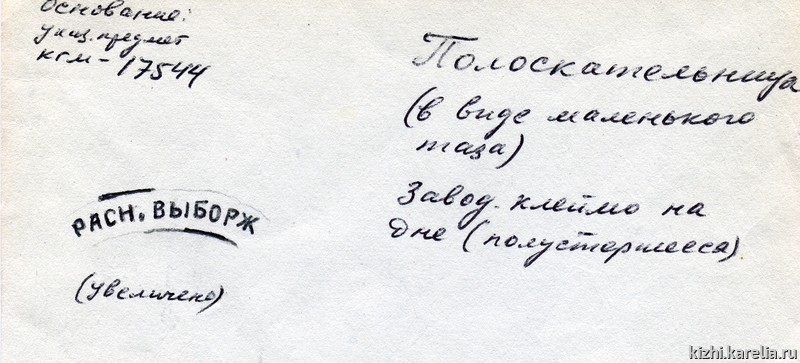 Основание:
униц. предмет
КГМ-17544
Полоскательница
(в виде маленького
таза)
Завод. клеймо на
дне (полустершееся)
РАСН. ВЫБОРЖ
(увеличено)
kizhi.karelia.ru